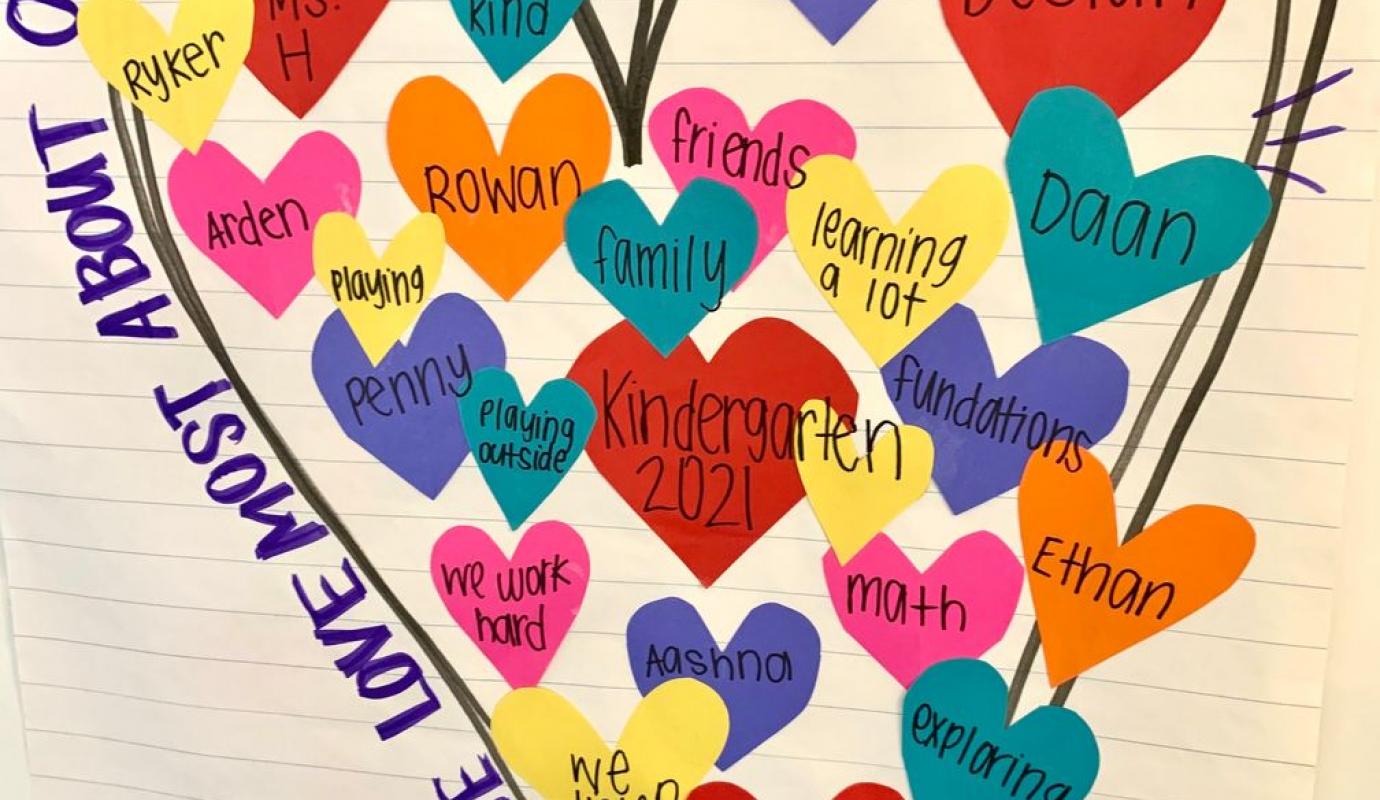 Ms.
H
kind
Ryker
Arden
Rowan
friends
family
learning
a lot
Daan
playing
Penny
playing
outside
Kindergarten
2021
fundations
we work
hard
Aashna
math
Ethan
exploring
we
LOVE MOST ABOUT